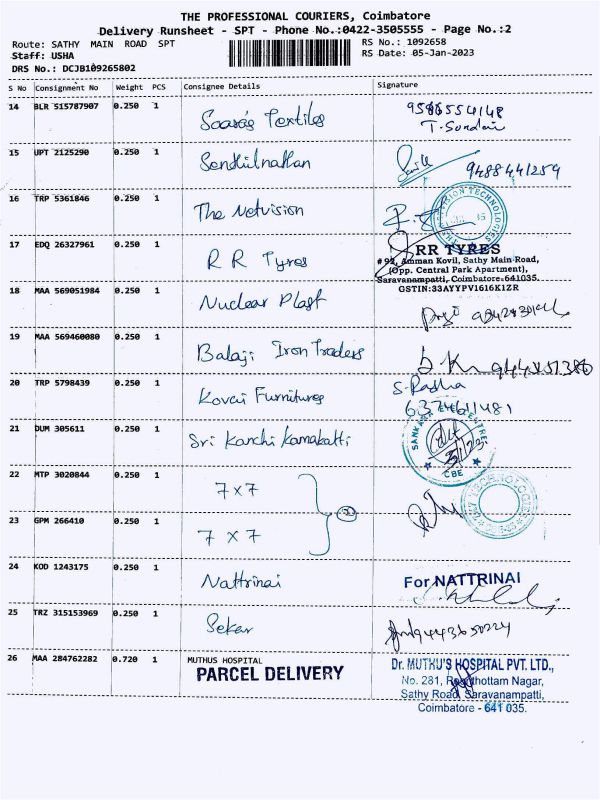 THE PROFESSIONAL COURIERS, Coimbatore
Delivery Runsheet - SPT - Phone No.:0422-3505555 - Page No.:2
Route: SATHY MAIN ROAD SPT
RS No.: 1092658
Staff: USHA
RS Date: 05-Jan-2023
DRS No.: DCJB109265802
S No Consignment No Weight PCS Consignee Details Signature
14 BLR 515787907 0.250 1 Saara's Textiles
T. Sundari
15 UPT 2125290 0.250 1 Senthilnathan 9488441259
16 TRP 5361846 0.250 1 The Netvision
17 EDQ 26327961 0.250 1 R R Tyres
RR TYRES
# 92, Amman Kovil, Sathy Main Road,
(Opp. Central Park Apartment),
Saravanampatti, Coimbatore-641035.
GSTIN:33AYYPV1616K1ZR
18 MAA 569051984 0.250 1 Nuclear Plast
19 MAA 569460080 0.250 1 Balaji Iron Traders
20 TRP 5798439 0.250 1 Kovai Furnitures
S. Radha
6374611481
21 DUM 305611 0.250 1 Sri Kanchi Kamakatti
CBE
22 MTP 3020844 0.250 1 7 x 7
23 GPM 266410 0.250 1 7 x 7
24 KOD 1243175 0.250 1 Nattrinai
For NATTRINAI
25 TRZ 315153969 0.250 1 Sekar 9443650224
26 MAA 284762282 0.720 1 MUTHUS HOSPITAL
PARCEL DELIVERY
Dr. MUTHU'S HOSPITAL PVT. LTD.,
No. 281, Revathottam Nagar,
Sathy Road, Saravanampatti,
Coimbatore - 641 035.